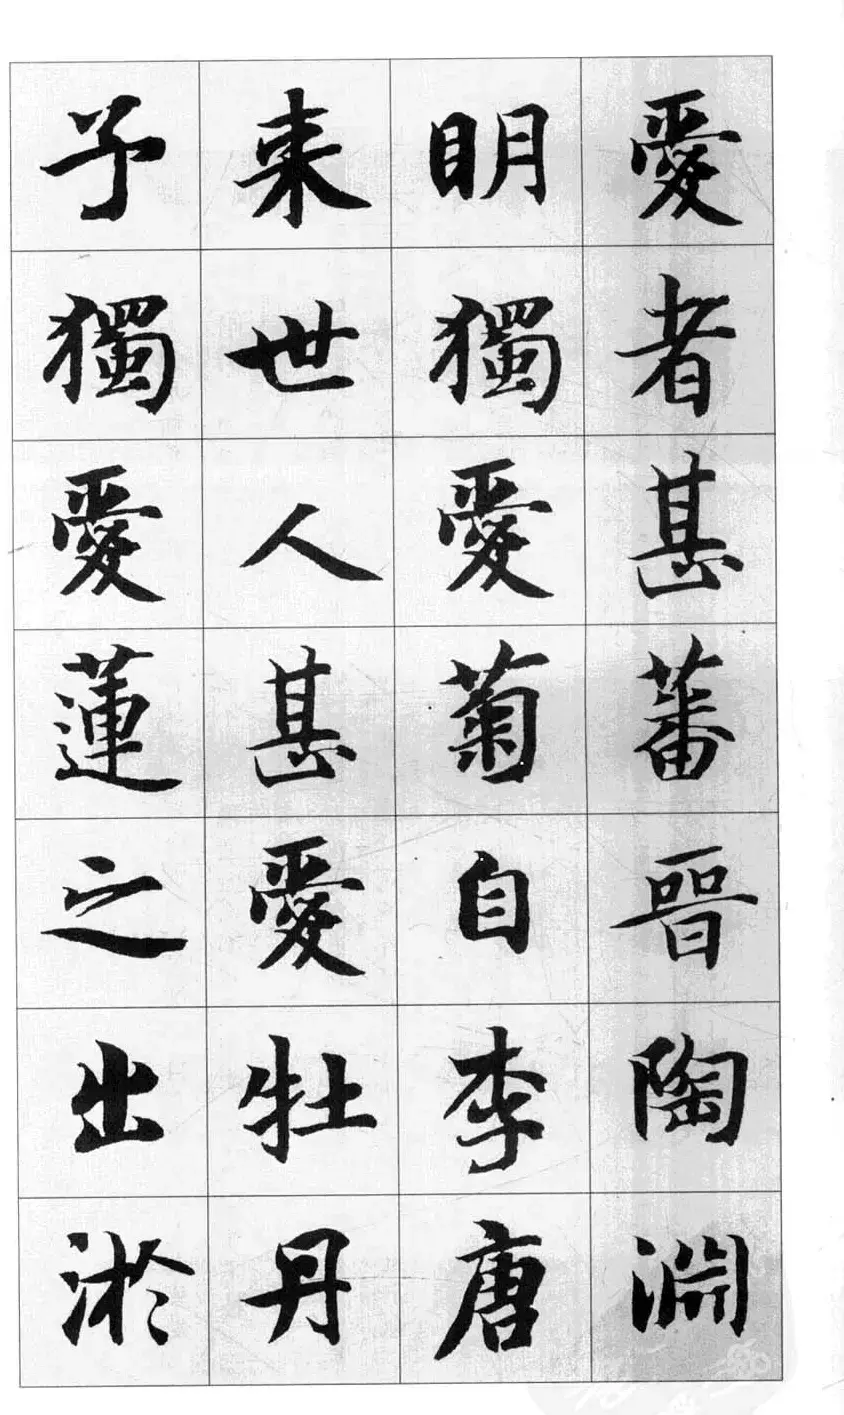 愛者甚蕃晉陶淵
明獨愛菊自李唐
來世人甚愛牡丹
予獨愛蓮之出淤